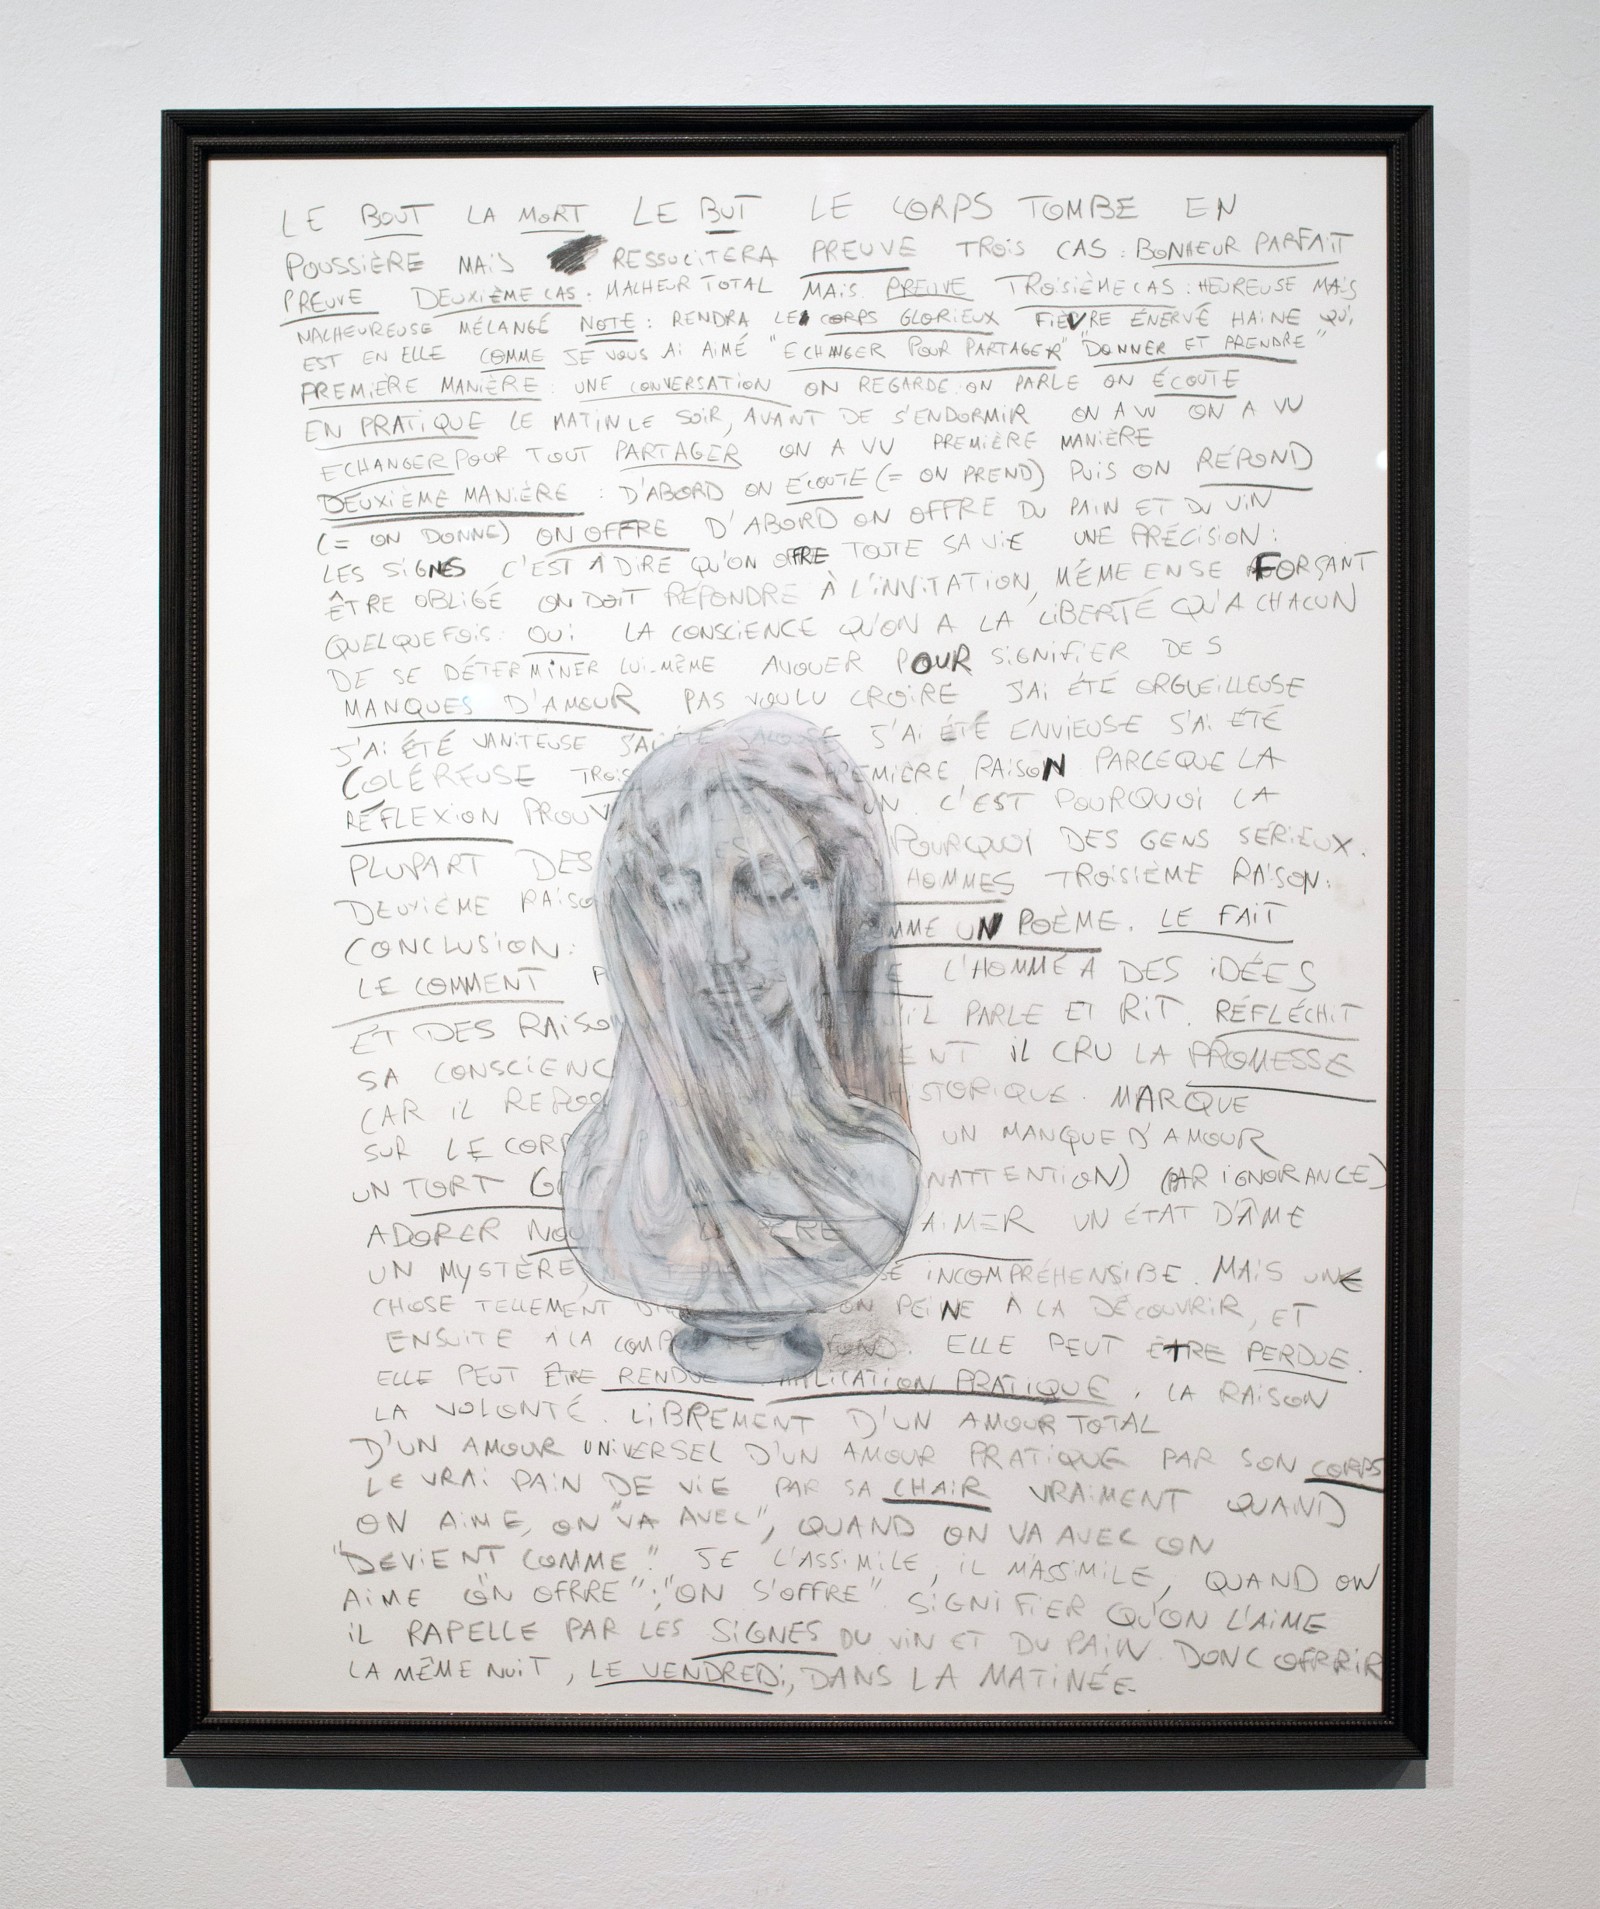 LE BOUT LA MORT LE BUT LE CORPS TOMBE EN
POUSSIÈRE MAIS RESSUCITERA PREUVE TROIS CAS : BONHEUR PARFAIT
PREUVE DEUXIÈME CAS : MALHEUR TOTAL MAIS PREUVE TROISIÈME CAS : HEUREUSE MAIS
MALHEUREUSE MÉLANGÉ NOTE : RENDRA LE CORPS GLORIEUX FIÈVRE ÉNERVÉ HAINE QUI
EST EN ELLE COMME JE VOUS AI AIMÉ "ECHANGER POUR PARTAGER" "DONNER ET PRENDRE"
PREMIÈRE MANIÈRE : UNE CONVERSATION ON REGARDE ON PARLE ON ÉCOUTE
EN PRATIQUE LE MATIN LE SOIR, AVANT DE S'ENDORMIR ON A VU ON A VU
ECHANGER POUR TOUT PARTAGER ON A VU PREMIÈRE MANIÈRE
DEUXIÈME MANIÈRE : D'ABORD ON ÉCOUTE (= ON PREND) PUIS ON RÉPOND
(= ON DONNE) ON OFFRE D'ABORD ON OFFRE DU PAIN ET DU VIN
LES SIGNES C'EST À DIRE QU'ON OFFRE TOUTE SA VIE UNE PRÉCISION :
ÊTRE OBLIGÉ ON DOIT RÉPONDRE À L'INVITATION, MÉME EN SE FORÇANT
QUELQUEFOIS : OUI LA CONSCIENCE QU'ON A LA LIBERTÉ QU'A CHACUN
DE SE DÉTERMINER LUI-MÊME AVOUER POUR SIGNIFIER DES
MANQUES D'AMOUR PAS VOULU CROIRE J'AI ÉTÉ ORGUEILLEUSE
J'AI ÉTÉ VANITEUSE J'AI ÉTÉ JALOUSE J'AI ÉTÉ ENVIEUSE J'AI ÉTÉ
COLÉREUSE TROIS EMIÈRE RAISON PARCEQUE LA
RÉFLEXION PROUV UN C'EST POURQUOI LA
PLUPART DES POURQUOI DES GENS SÉRIEUX.
DEUXIÈME RAISO HOMMES TROISIÈME RAISON :
CONCLUSION : MME UN POÈME. LE FAIT
LE COMMENT E L'HOMME A DES IDÉES
ET DES RAISO IL PARLE ET RIT. RÉFLÉCHIT
SA CONSCIENC ENT IL CRU LA PROMESSE
CAR IL REPOS HISTORIQUE. MARQUE
SUR LE CORP UN MANQUE D'AMOUR
UN TORT G NATTENTION) (PAR IGNORANCE)
ADORER NOU AIMER UN ÉTAT D'ÂME
UN MYSTÈRE, INCOMPRÉHENSIBE. MAIS UNE
CHOSE TELLEMENT ON PEINE À LA DÉCOUVRIR, ET
ENSUITE À LA COMP FOND. ELLE PEUT ÊTRE PERDUE.
ELLE PEUT ÊTRE RENDUE APPLICATION PRATIQUE. LA RAISON
LA VOLONTÉ. LIBREMENT D'UN AMOUR TOTAL
D'UN AMOUR UNIVERSEL D'UN AMOUR PRATIQUE PAR SON CORPS
LE VRAI PAIN DE VIE PAR SA CHAIR VRAIMENT QUAND
ON AIME, ON "VA AVEC", QUAND ON VA AVEC ON
"DEVIENT COMME". JE L'ASSIMILE, IL M'ASSIMILE, QUAND ON
AIME ON OFRRE" ; "ON S'OFFRE" SIGNIFIER QU'ON L'AIME
IL RAPELLE PAR LES SIGNES DU VIN ET DU PAIN. DONC OFRRIR
LA MÊME NUIT, LE VENDREDI, DANS LA MATINÉE.